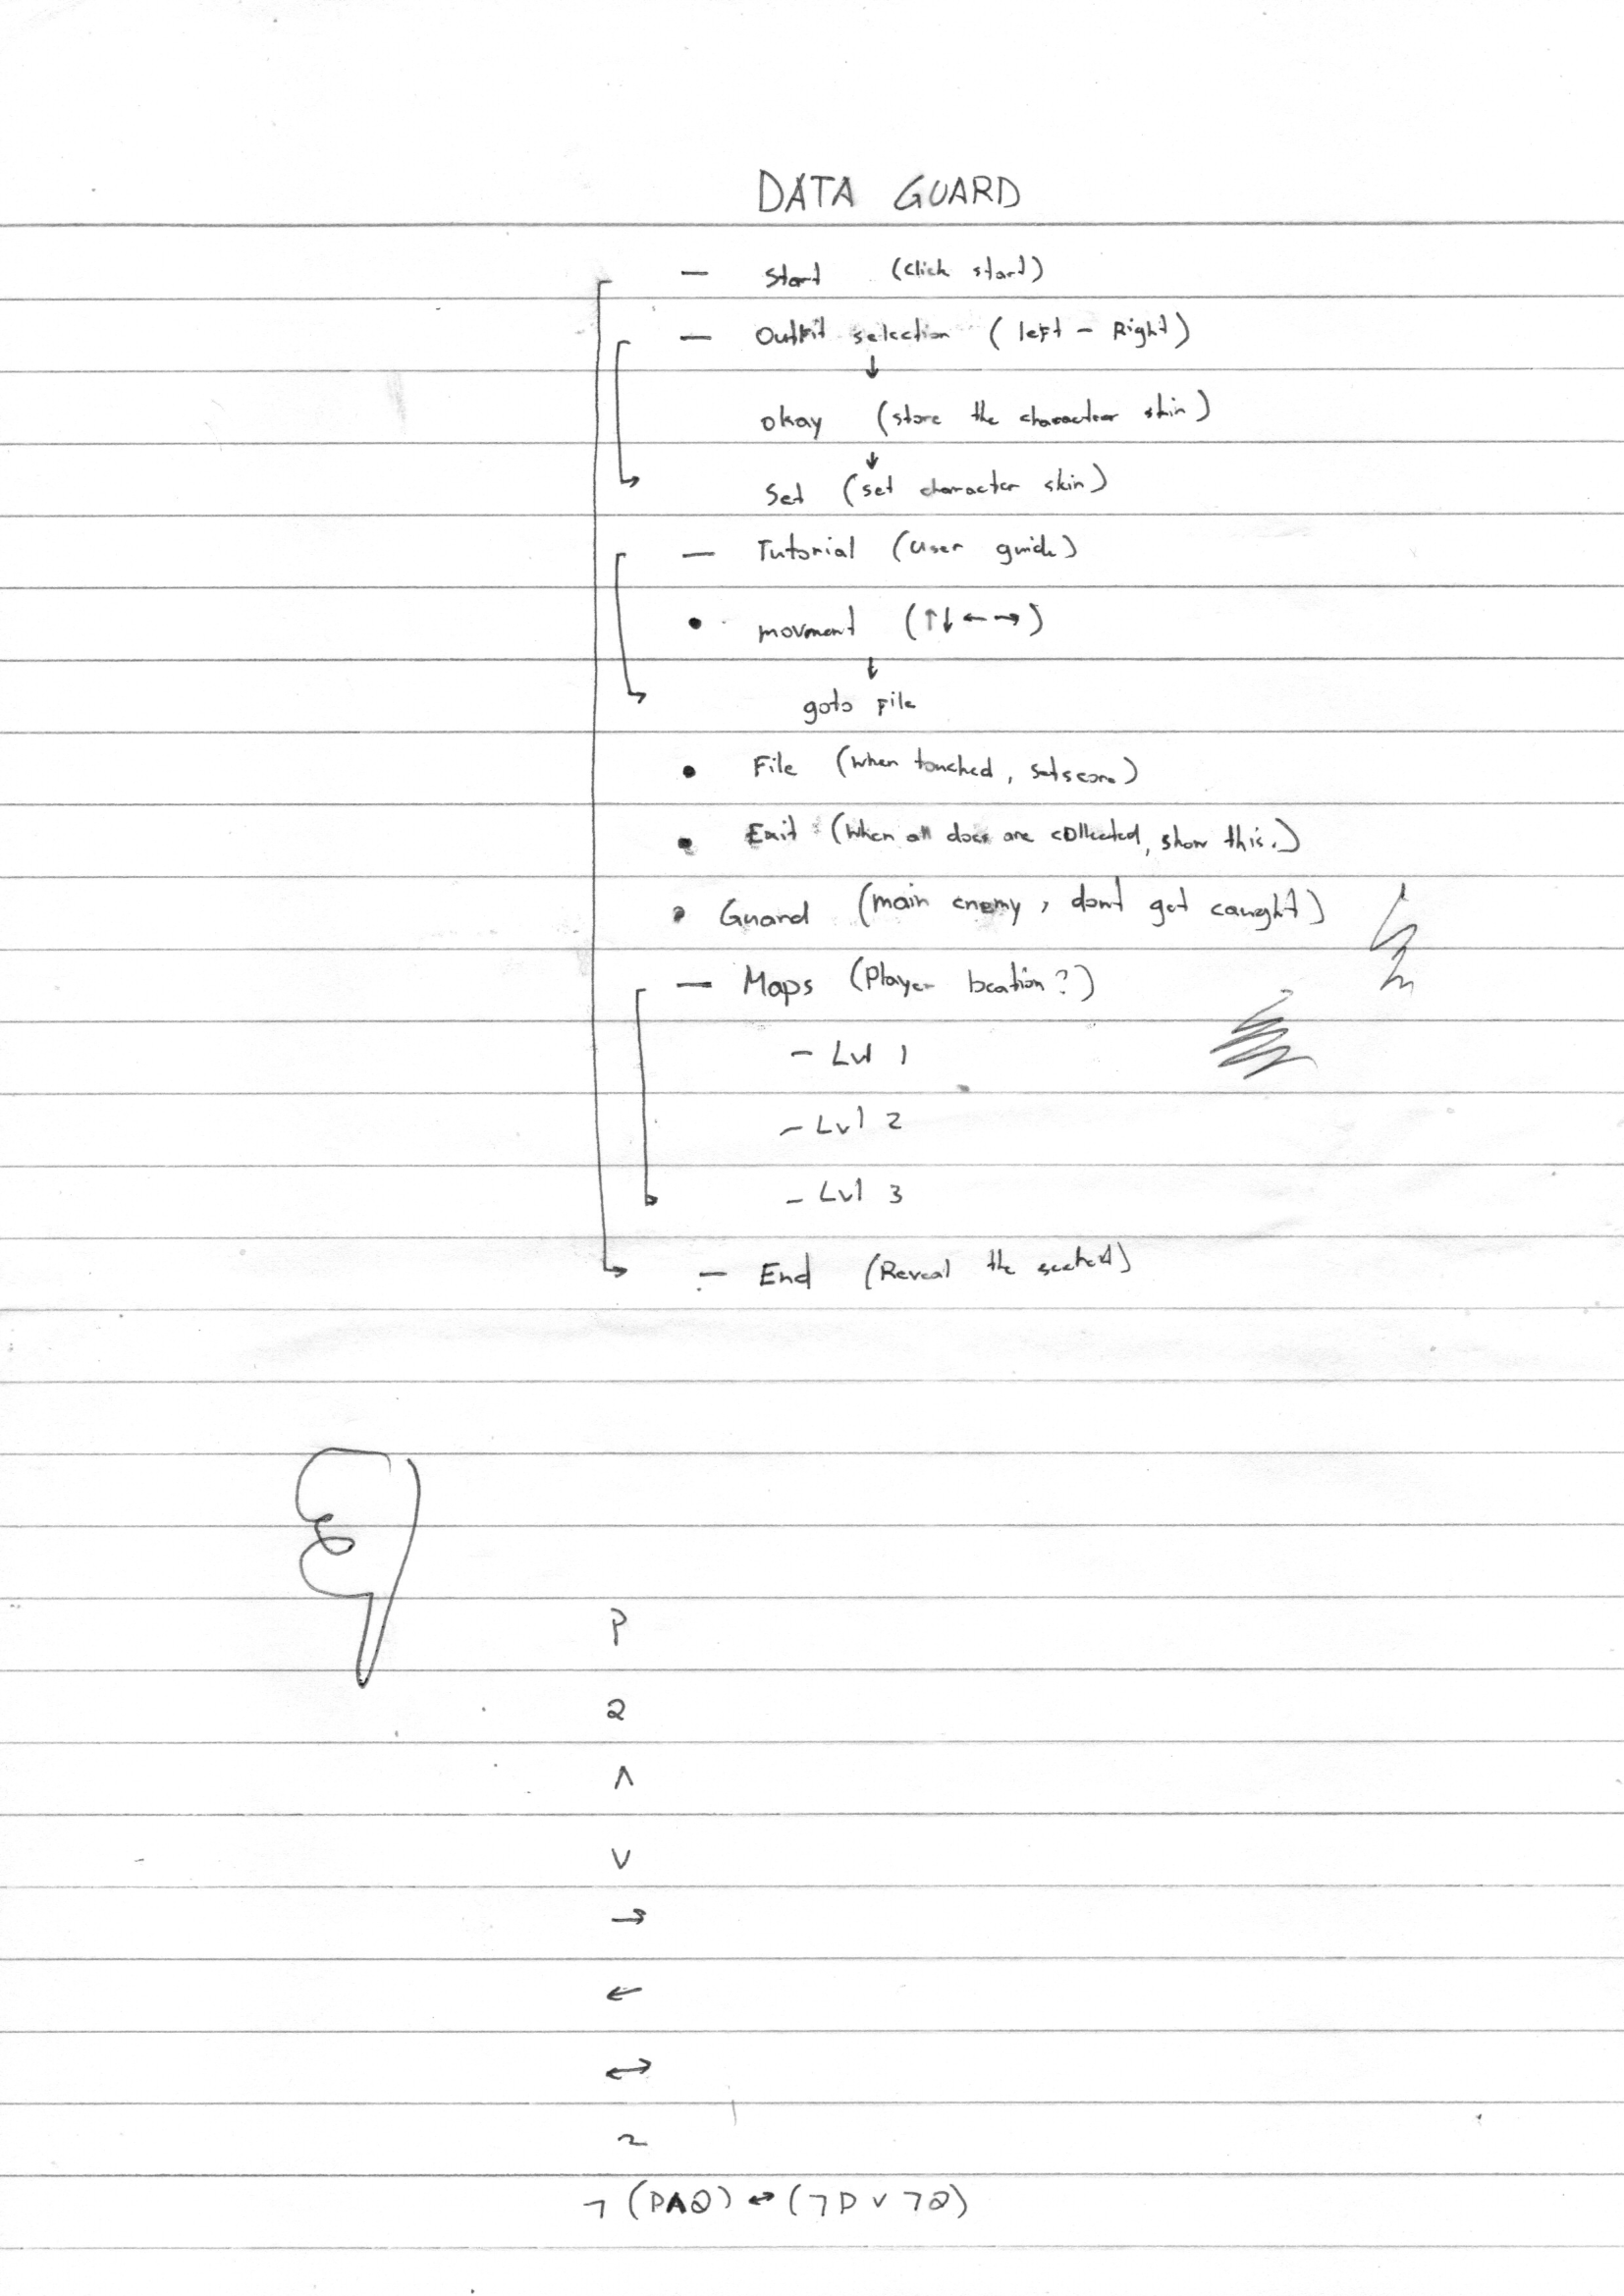 DATA GUARD
— Start (click start)
— Outfit selection (left - Right)
↓
okay (store the character skin)
↓
Set (set character skin)
— Tutorial (user guide)
• movment (↑↓←→)
↓
goto file
• File (when touched, setscore)
• Exit (when all docs are collected, show this.)
• Guard (main enemy, dont get caught)
— Maps (Player location?)
- Lvl 1
- Lvl 2
- Lvl 3
— End (Reveal the)
P
Q
∧
∨
→
←
↔
¬(P∧Q) ↔ (¬P ∨ ¬Q)